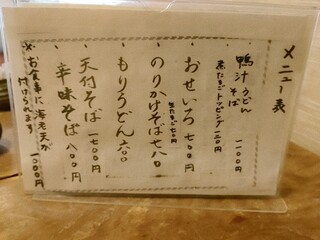 メニュー表
鴨汁うどん
そば 一一〇〇円
煮たまごトッピング一五〇円
おせいろ 七〇〇円
生たまご七〇円
のりかけそば七八〇
もりうどん六〇〇
天付そば 一七〇〇円
辛味そば 八〇〇円
※お食事に海老天が
付けられます 一〇〇〇円